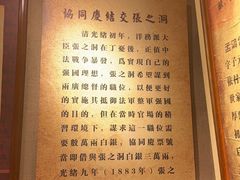 協同慶結交張之洞
清光緒初年，洋務派大
臣張之洞在丁憂後，正值中
法戰爭暴發，爲實現自己的
强國理想，張之洞希望謀到
兩廣總督的職位，以便更好
的實施其抵御法軍整軍强國
的目的，但在當時官場的積
習環境下，謀求這一職位需
要數萬兩白銀，協同慶票號
當即借與張之洞白銀三萬兩，
光緒九年（1883年）張之